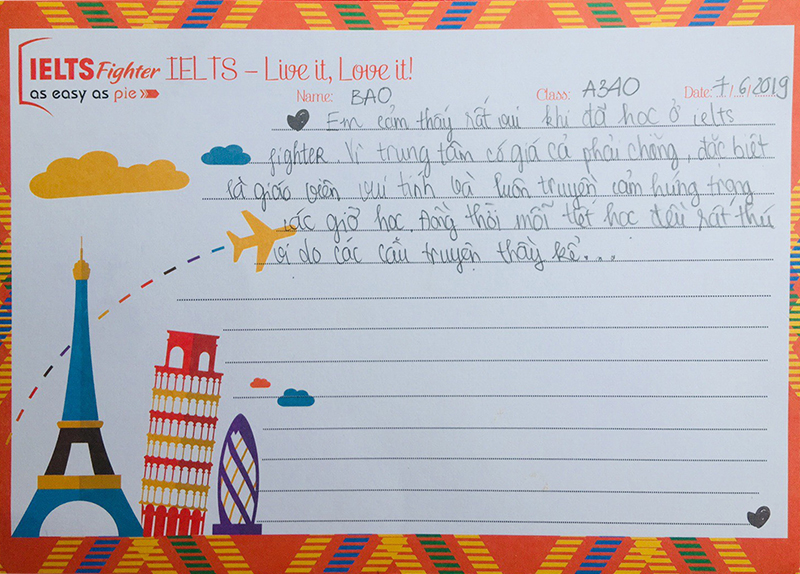 IELTS Fighter IELTS – Live it, Love it!
as easy as pie
Name: BAO Class: A340 Date: 7/6/2019
Em cảm thấy rất vui khi đã học ở ielts
fighter. Vì trung tâm có giá cả phải chăng, đặc biệt
là giáo viên vui tính và luôn truyền cảm hứng trong
các giờ học. Đồng thời mỗi tiết học đều rất thú
vị do các câu truyện thầy kể...